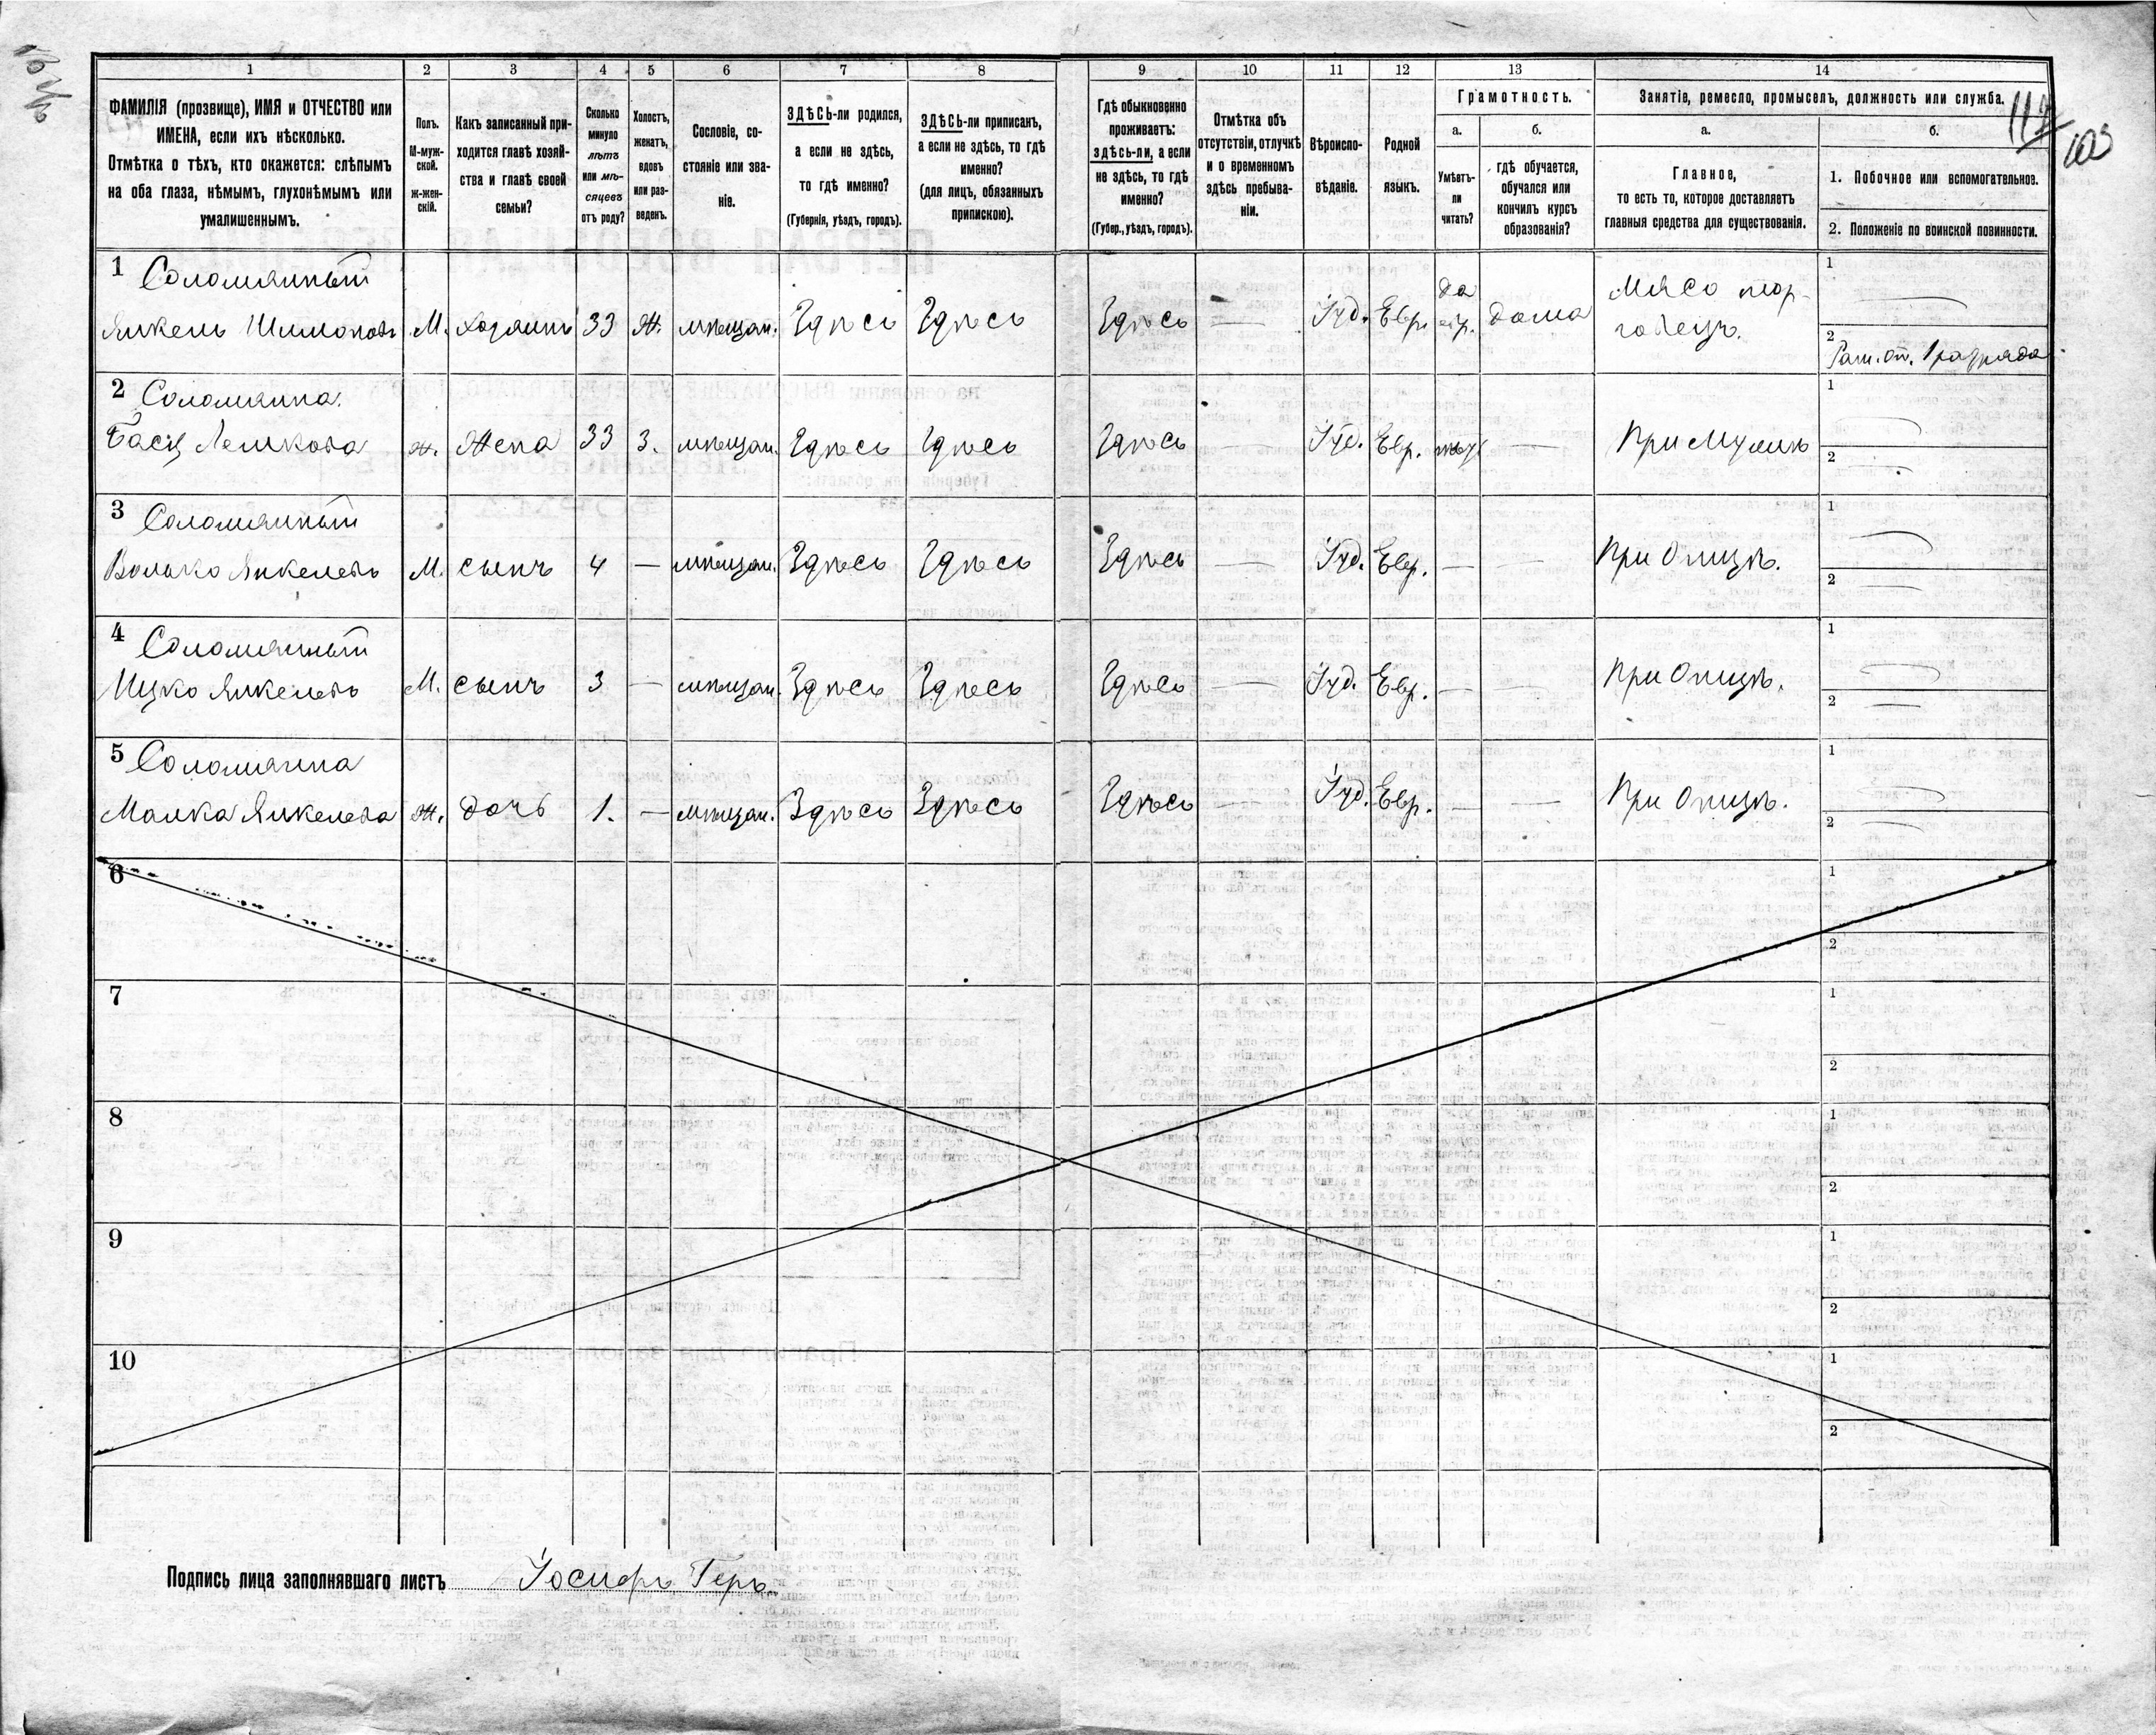 1 2 3 4 5 6 7 8 9 10 11 12 13 14
ФАМИЛІЯ (прозвище), ИМЯ и ОТЧЕСТВО или
ИМЕНА, если ихъ нѣсколько.
Отмѣтка о тѣхъ, кто окажется: слѣпымъ
на оба глаза, нѣмымъ, глухонѣмымъ или
умалишеннымъ.
Полъ.
М-муж-
ской.
ж-жен-
скій.
Какъ записанный при-
ходится главѣ хозяй-
ства и главѣ своей
семьи?
Сколько
минуло
лѣтъ
или мѣ-
сяцевъ
отъ роду?
Холостъ,
женатъ,
вдовъ
или раз-
веденъ.
Сословіе, со-
стояніе или зва-
ніе.
ЗДѢСЬ-ли родился,
а если не здѣсь,
то гдѣ именно?
(Губернія, уѣздъ, городъ).
ЗДѢСЬ-ли приписанъ,
а если не здѣсь, то гдѣ
именно?
(для лицъ, обязанныхъ
припискою).
Гдѣ обыкновенно
проживаетъ:
здѣсь-ли, а если
не здѣсь, то гдѣ
именно?
(Губер., уѣздъ, городъ).
Отмѣтка объ
отсутствіи, отлучкѣ
и о временномъ
здѣсь пребыва-
ніи.
Вѣроиспо-
вѣданіе.
Родной
языкъ.
Грамотность.
а.
Умѣетъ-
ли
читать?
б.
гдѣ обучается,
обучался или
кончилъ курсъ
образованія?
Занятіе, ремесло, промыселъ, должность или служба.
а.
Главное,
то есть то, которое доставляетъ
главныя средства для существованія.
б.
1. Побочное или вспомогательное.
2. Положеніе по воинской повинности.
103
1 Соломянный
Янкель Шимоновъ М. хозяинъ 33 Ж. мѣщан. Здѣсь Здѣсь Здѣсь — Іуд. Евр. да дома Мясо тор-
говецъ.
1 —
2 Рат. оп. 1 разряда
2 Соломянна.
Бася Лешкова ж. Жена 33 З. мѣщан. Здѣсь Здѣсь Здѣсь — Іуд. Евр. — При Мужѣ
1 —
2 —
3 Соломянный
Волько Янкелевъ М. сынъ 4 — мѣщан. Здѣсь Здѣсь Здѣсь — Іуд. Евр. — — При Отцѣ.
1 —
2 —
4 Соломянный
Ицко Янкелевъ М. сынъ 3 — мѣщан. Здѣсь Здѣсь Здѣсь — Іуд. Евр. — — При Отцѣ.
1 —
2 —
5 Соломянна
Малка Янкелева ж. дочь 1. — мѣщан. Здѣсь Здѣсь Здѣсь — Іуд. Евр. — — При Отцѣ.
1 —
2 —
6 1
2
7 1
2
8 1
2
9 1
2
10 1
2
Подпись лица заполнявшаго листъ Іосифъ Геръ